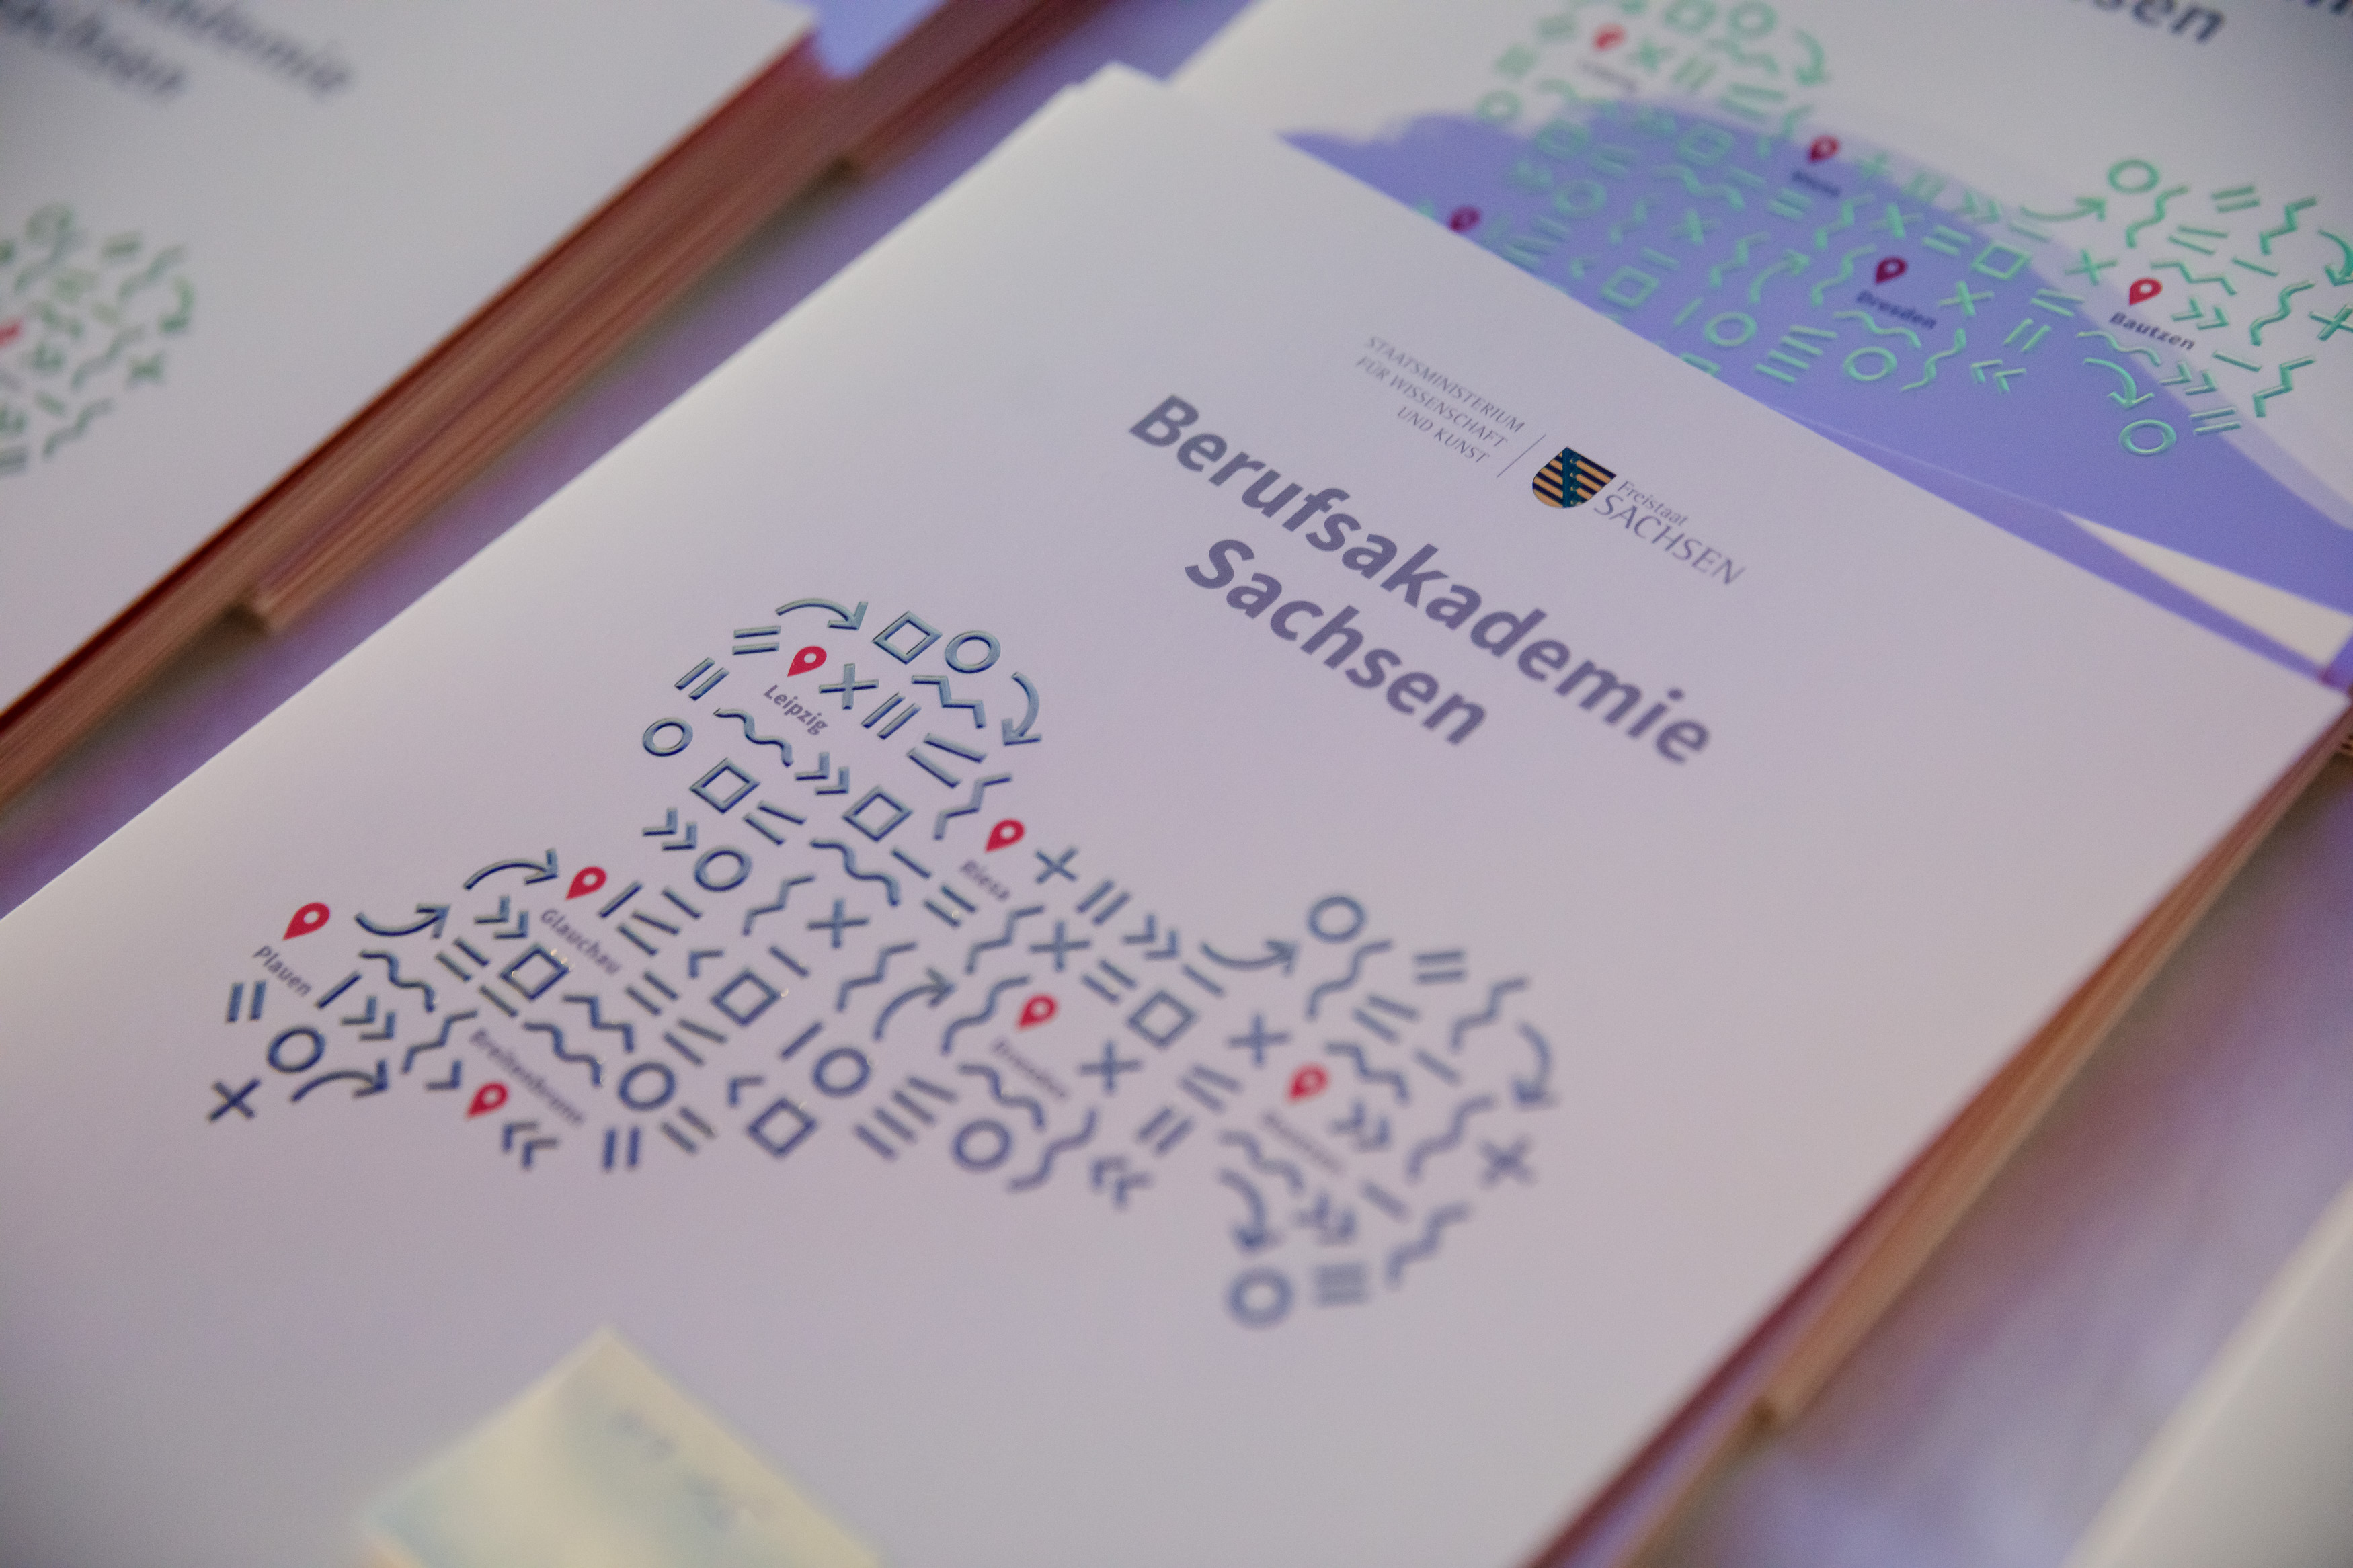 STAATSMINISTERIUM
FÜR WISSENSCHAFT
UND KUNST
Freistaat
SACHSEN
Berufsakademie
Sachsen
Leipzig
Riesa
Glauchau
Plauen
Breitenbrunn
Dresden
Bautzen
Dresden
Bautzen